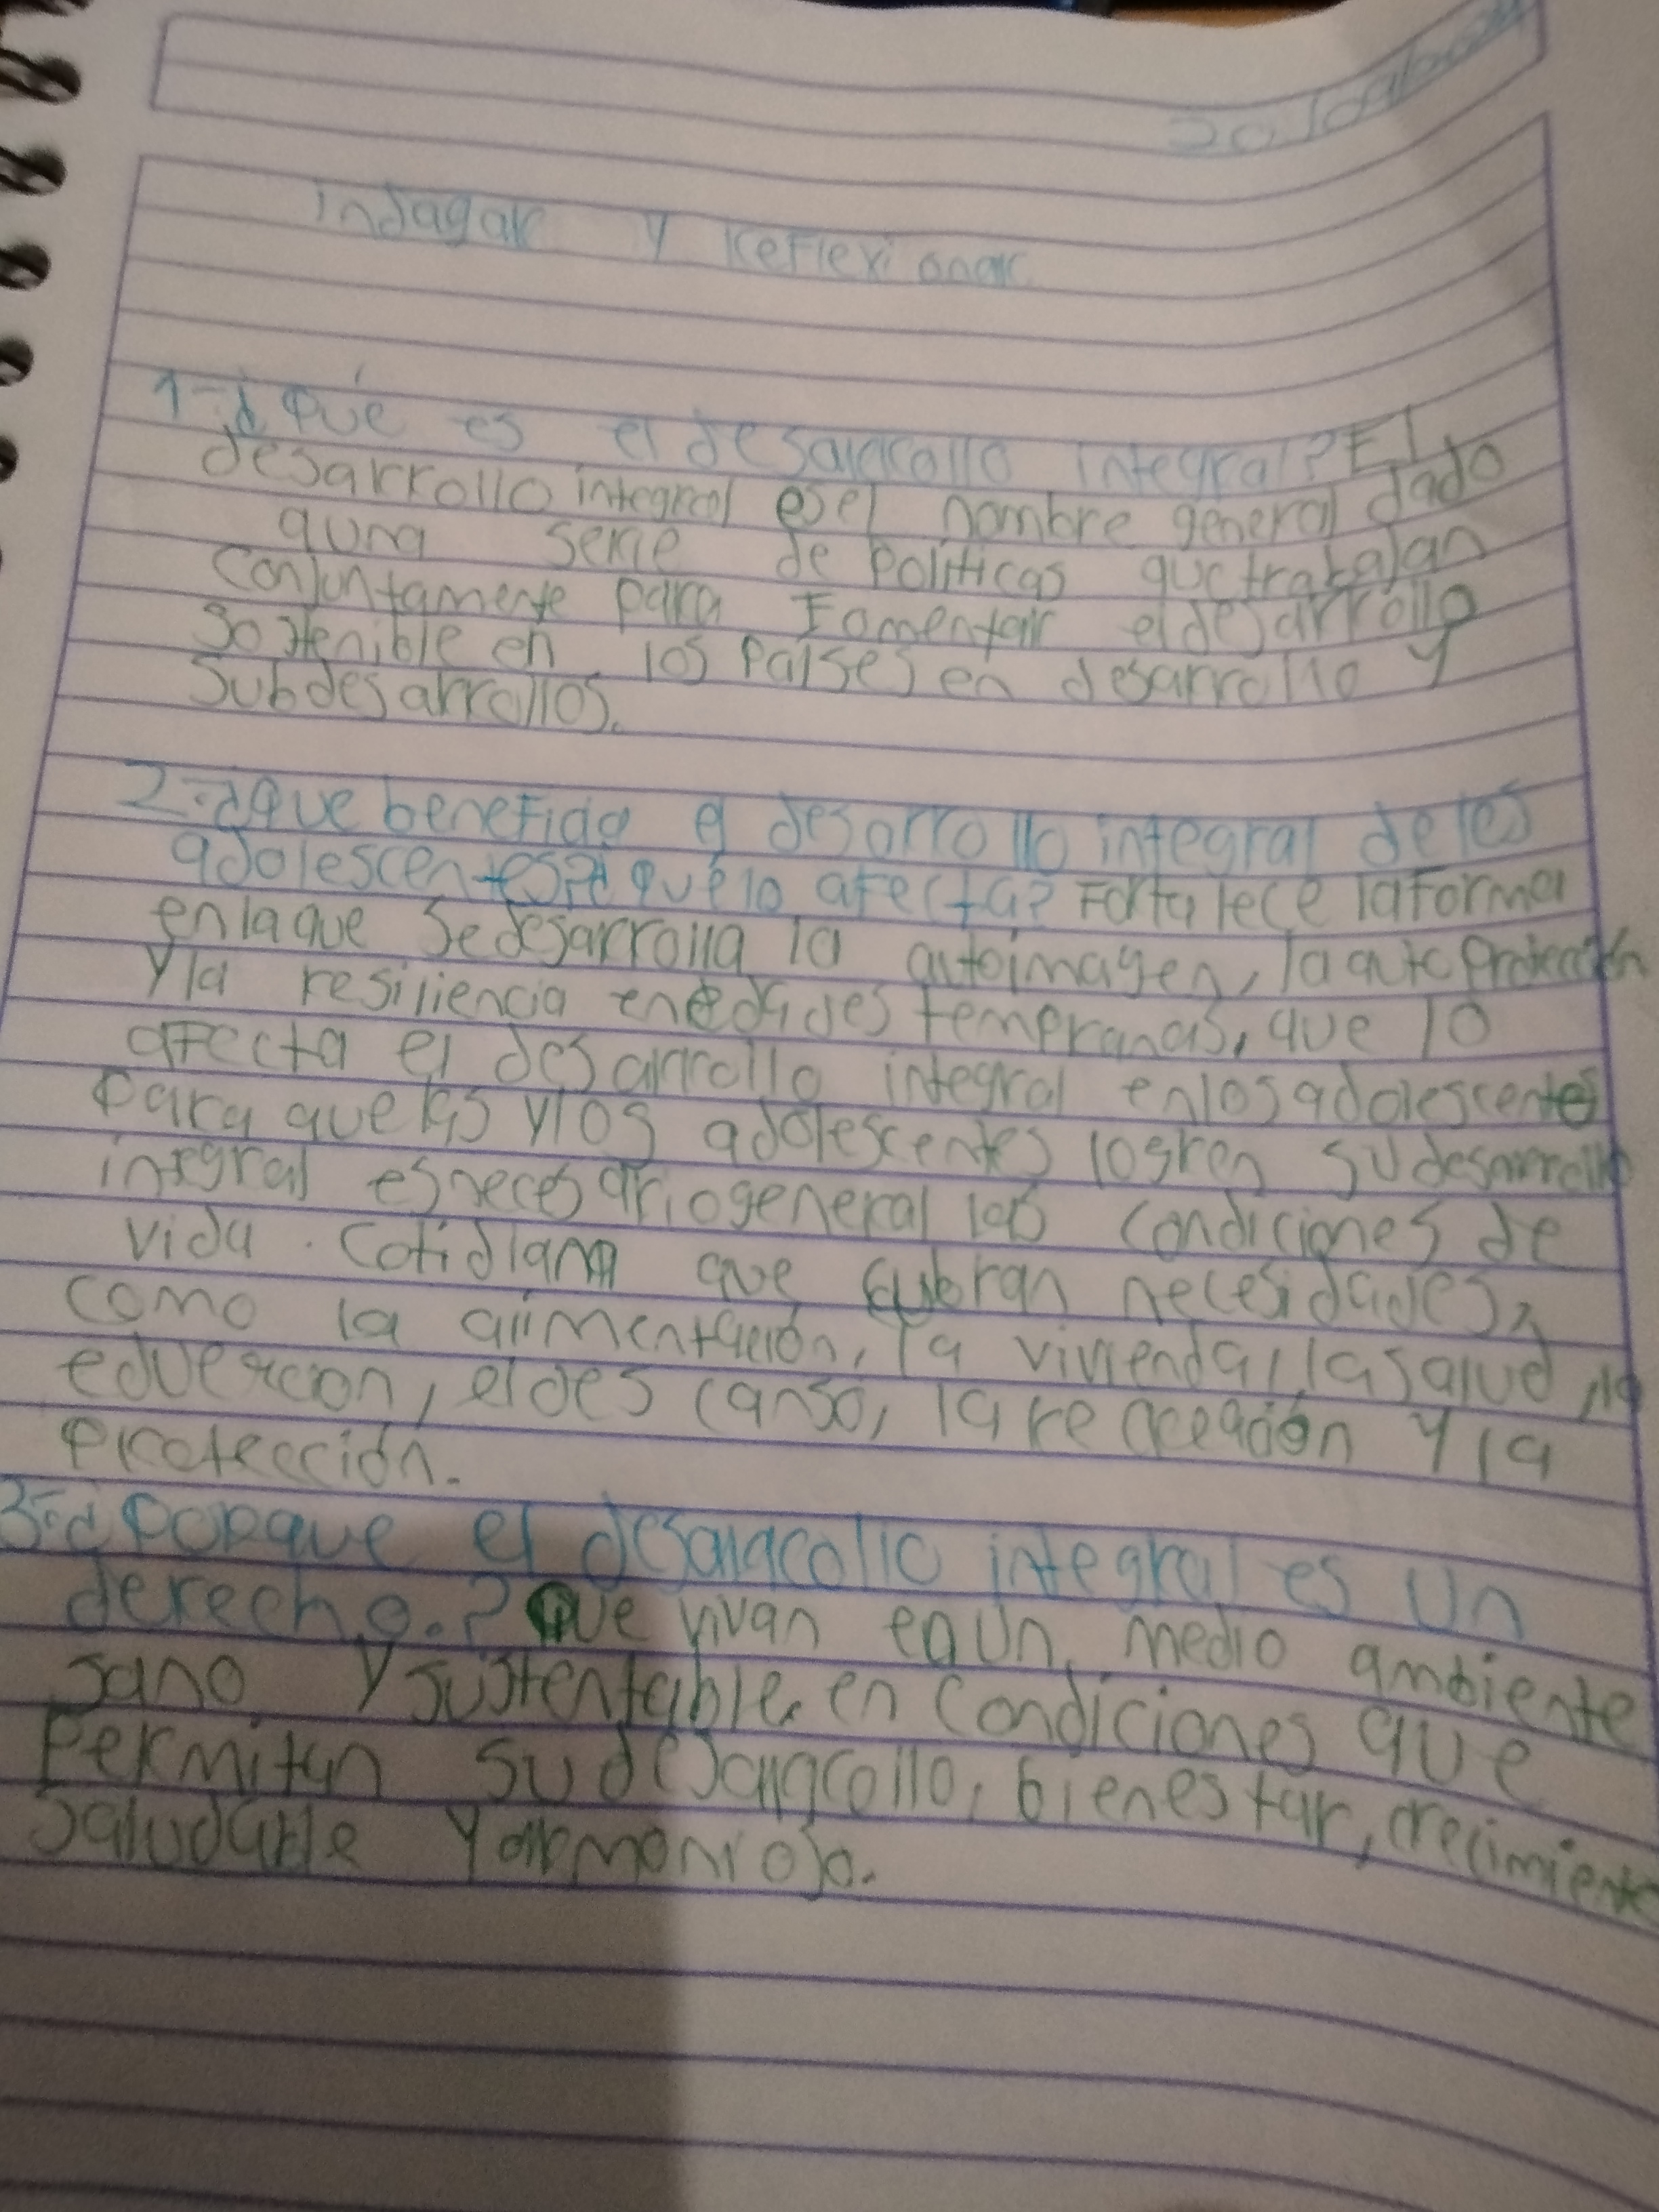 indagar y reflexionar
1-¿Qué es el desarrollo integral? El
desarrollo integral es el nombre general dado
a una serie de Politicas que trabajan
conjuntamente para Fomentar el desarrollo
Sostenible en los Países en desarrollo y
Subdesarrollos.
2-¿Que beneficia el desorrollo integral de los
adolescentes?¿qué lo afecta? Fortalece la forma
en la que Se desarrolla la autoimagen, la autoprotección
y la resiliencia en edades tempranas, que lo
afecta el desarrollo integral en los adolescentes
Para que las y los adolescentes logren su desarrollo
integral es necesario general las condiciones de
vida cotidiana que cubran necesidades,
como la alimentación, la vivienda, la salud, la
educacion, el descanso, la recreación y la
Protección.
3-¿Porque el desarrollo integral es un
derecho.? Que vivan en un medio ambiente
sano y sustentable, en condiciones que
Permitan su desarrollo, bienestar, crecimiento
Saludable y